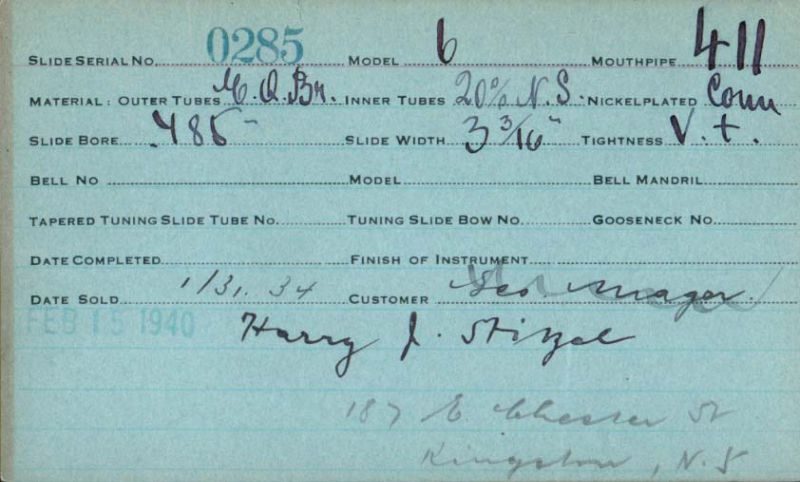 SLIDE SERIAL NO. 0285 MODEL 6 MOUTHPIPE 411
MATERIAL: OUTER TUBES Br. INNER TUBES 20% N.S. NICKELPLATED Conn
SLIDE BORE .485" SLIDE WIDTH 3 3/16" TIGHTNESS V.t.
BELL NO MODEL BELL MANDRIL
TAPERED TUNING SLIDE TUBE NO. TUNING SLIDE BOW NO. GOOSENECK NO.
DATE COMPLETED FINISH OF INSTRUMENT
DATE SOLD 1/31.34 CUSTOMER Geo. Mager.
FEB 15 1940
Harry J. Stitzel
187 E Chester St
Kingston, N.Y